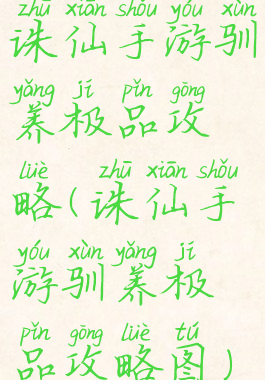 zhū xiān shǒu yóu xùn
诛仙手游驯
yǎng jí pǐn gōng
养极品攻
lüè zhū xiān shǒu
略(诛仙手
yóu xùn yǎng jí
游驯养极
pǐn gōng lüè tú
品攻略图)